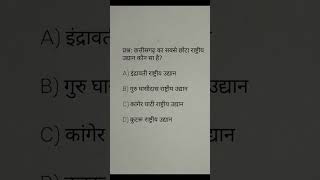 प्रश्न: छत्तीसगढ़ का सबसे छोटा राष्ट्रीय
उद्यान कौन सा है?
A) इंद्रावती राष्ट्रीय उद्यान
B) गुरु घासीदास राष्ट्रीय उद्यान
C) कांगेर घाटी राष्ट्रीय उद्यान
D) कुटरू राष्ट्रीय उद्यान